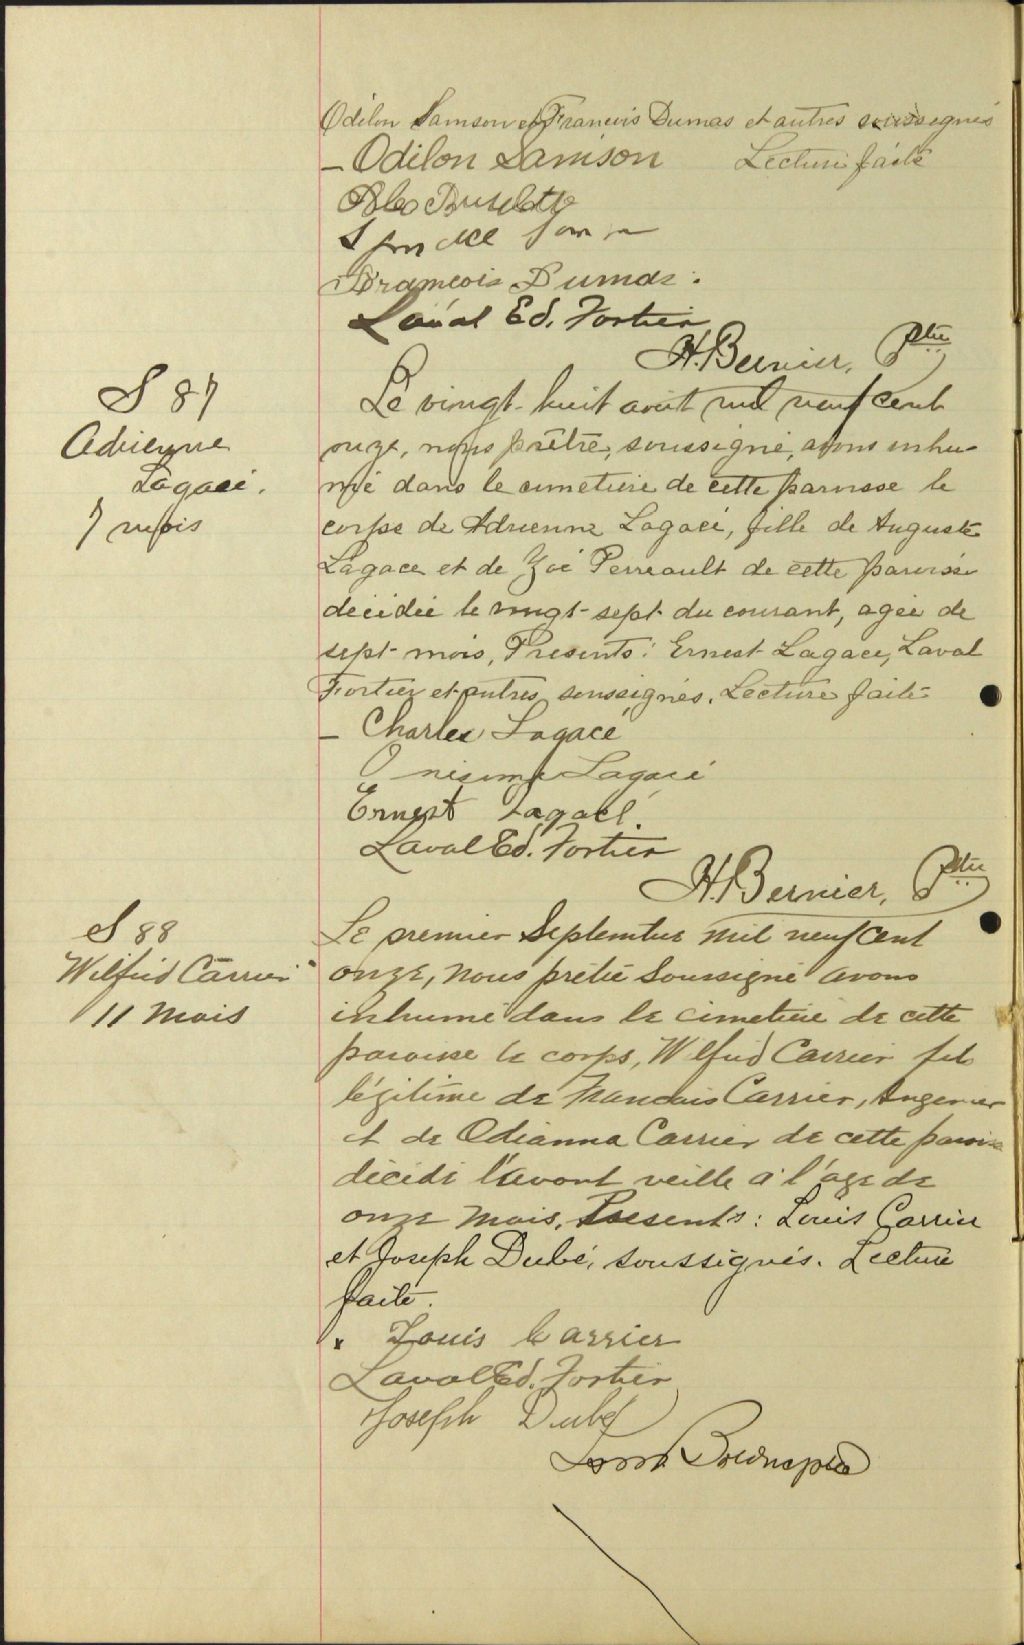 Odilon Samson et Francois Dumas et autres soussegnés
– Odilon Samson Lecture faite
Francois Dumas.
Laval Ed. Fortier
H. Bernier, Ptre
S 87
Adrienne
Lagacé.
7 mois
Le vingt-huit août mil neuf cent
onze, nous prêtre, soussigné, avons inhu-
mé dans le cimetière de cette paroisse le
corps de Adrienne Lagacé, fille de Auguste
Lagacé et de Zoé Perreault de cette paroisse
décédée le vingt-sept du courant, agée de
sept mois, Présents: Ernest Lagacé, Laval
Fortier et autres, soussignés. Lecture faite
– Charles Lagacé
Onisime Lagacé
Ernest Lagacé.
Laval Ed. Fortier
H. Bernier, Ptre
S 88
Wilfrid Carrier
11 mois
Le premier Septembre mil neuf cent
onze, nous prêtre soussigné avons
inhumé dans le cimetière de cette
paroisse le corps, Wilfrid Carrier fils
légitime de Francois Carrier,
et de Odianna Carrier de cette paroisse
décédé l'avant veille à l'age de
onze mois. Présents: Louis Carrier
et Joseph Dubé, soussignés. Lecture
faite.
x Louis Carrier
Laval Ed. Fortier
Joseph Dubé